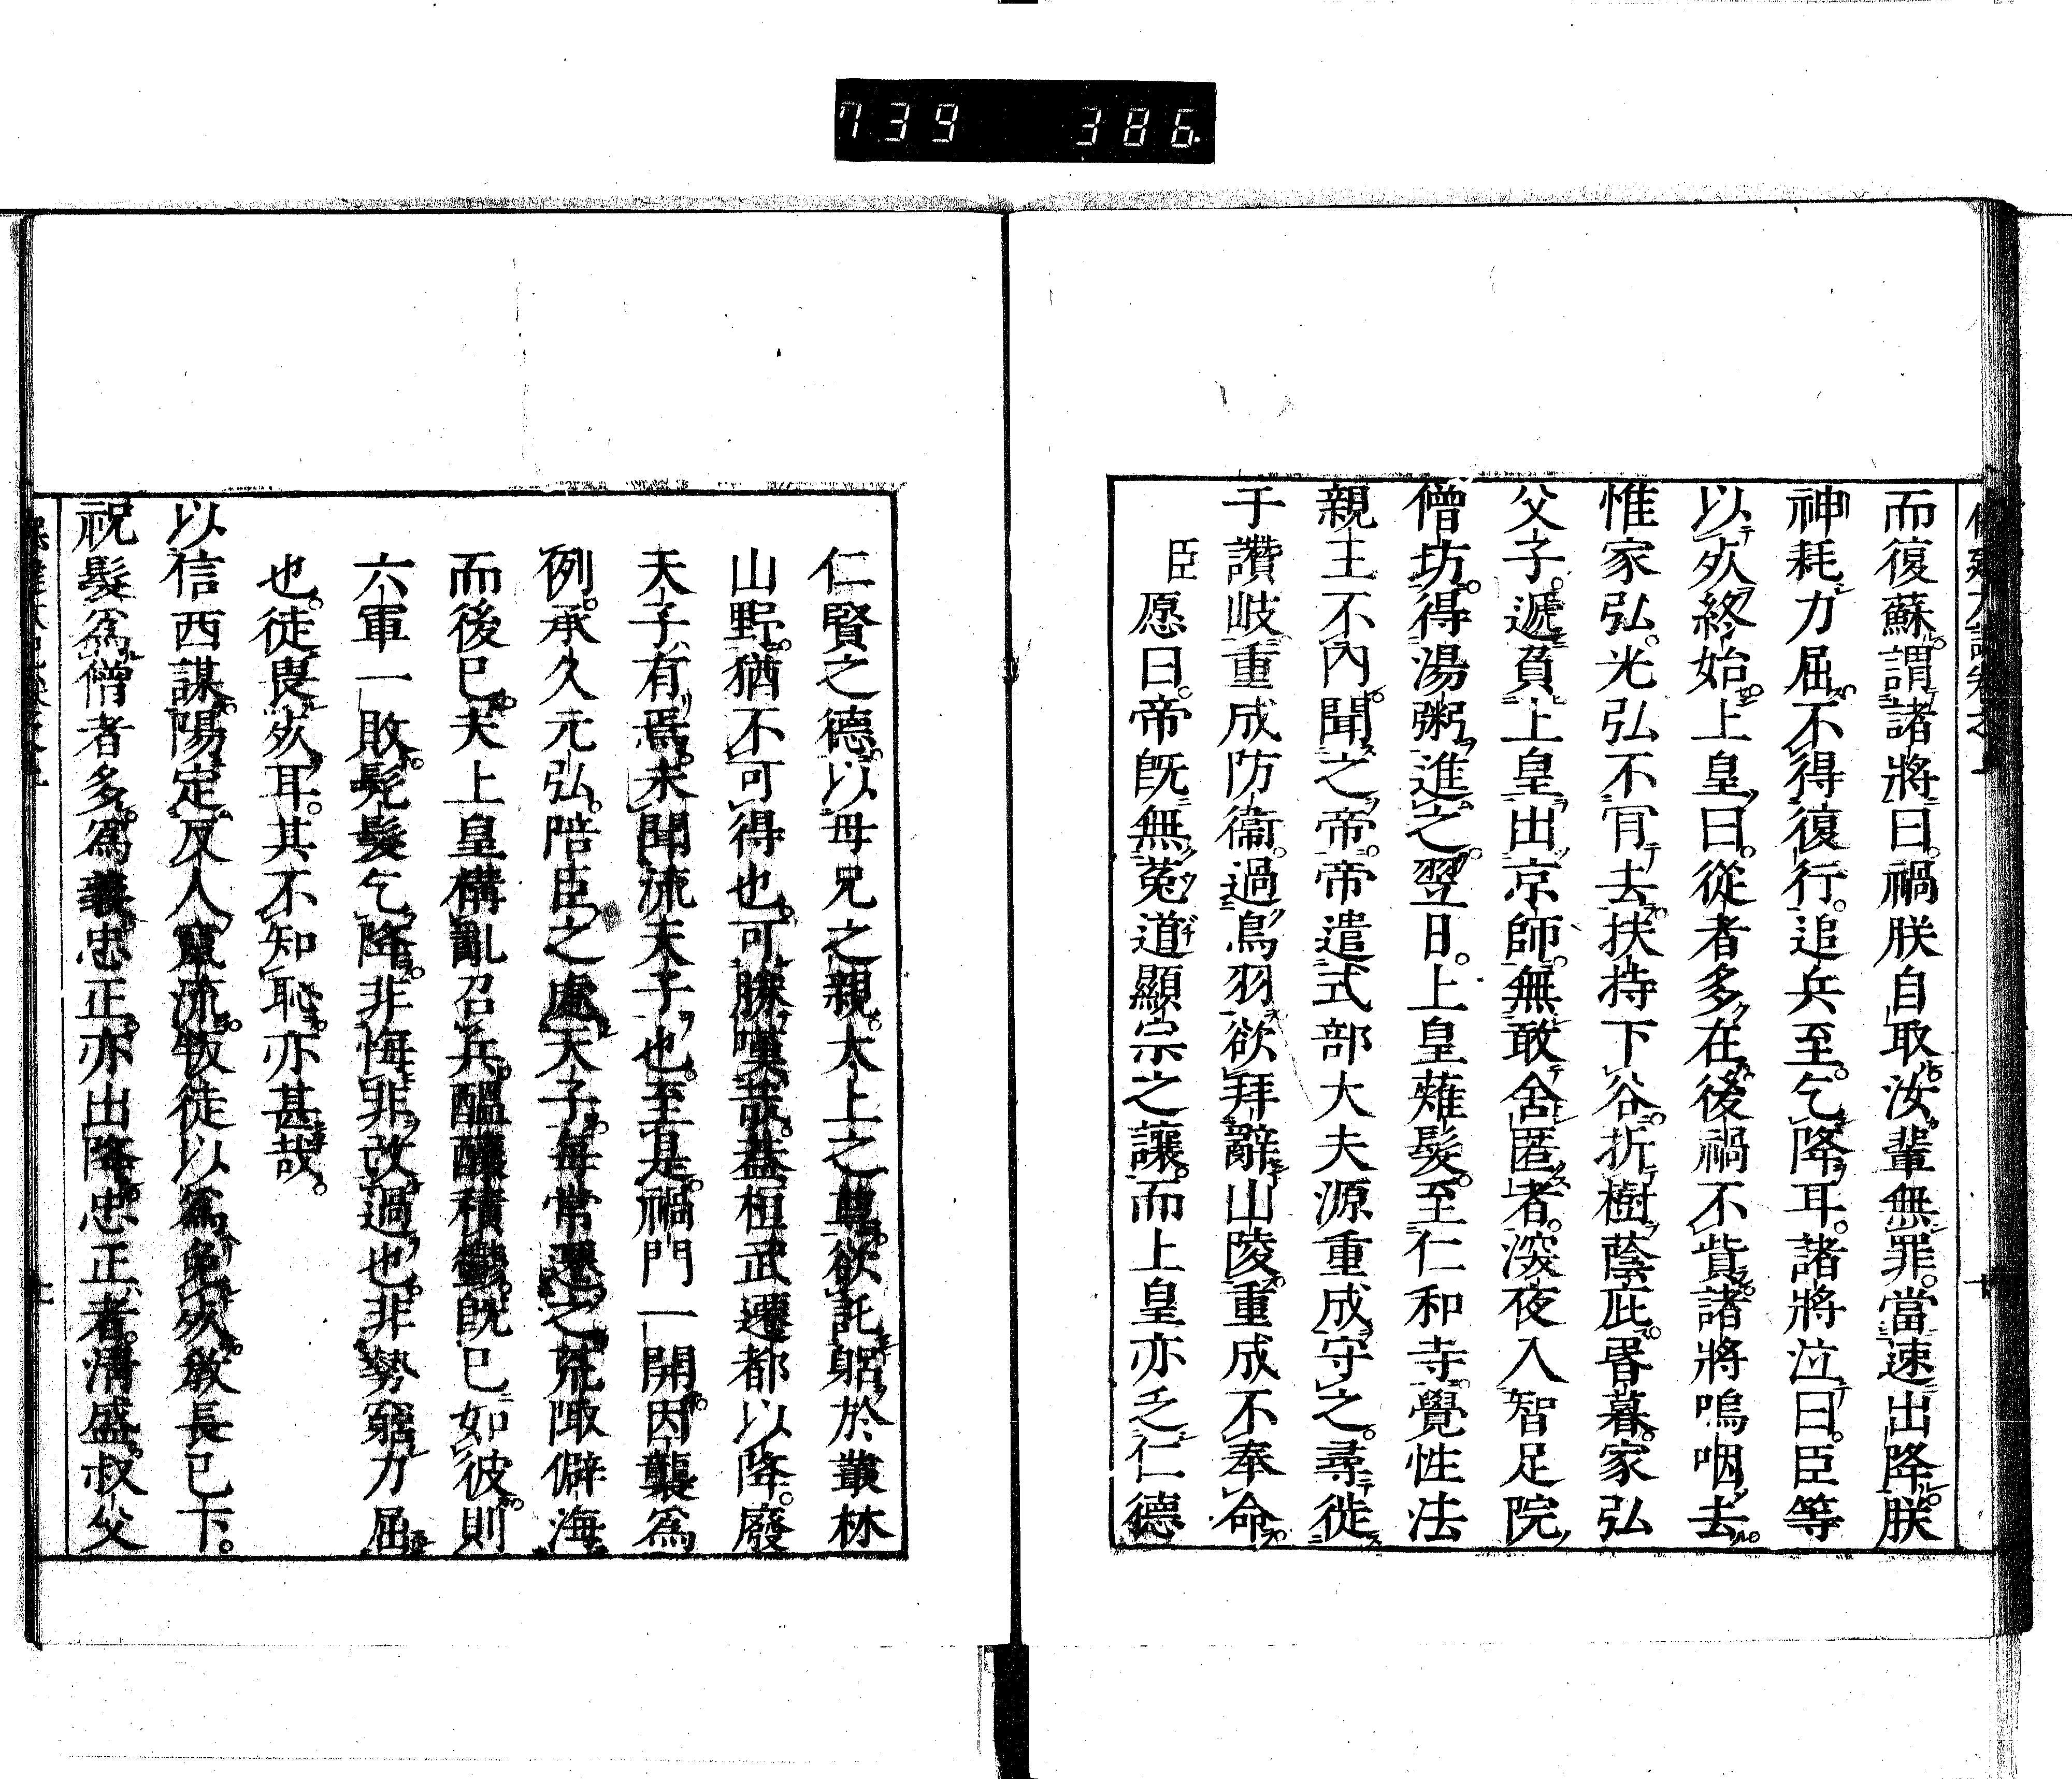 739 386
而復蘇。謂諸將曰。禍朕自取。汝輩無罪。當速出降。朕
神耗力屈。不得復行。追兵至。乞降耳。諸將泣曰。臣等
以死終始。上皇曰。從者多在後禍不貲。諸將嗚咽去。
惟家弘。光弘不肎去。扶持下谷。折樹蔭庇。昏暮。家弘
父子。遞負上皇出京師。無敢舍匿者。深夜入智足院
僧坊。得湯粥進之。翌日。上皇薙髮。至仁和寺。覺性法
親王不內。聞之帝。帝遣式部大夫源重成守之。尋徙
于讚岐。重成防衞。過鳥羽欲拜辭山陵。重成不奉命。
臣愿曰。帝旣無菟道顯宗之讓。而上皇亦乏仁德
仁賢之德。以母兄之親。太上之尊。欲託躬於叢林
山野。猶不可得也。可勝嘆哉。蓋桓武遷都以降。廢
天子有焉。未聞流天子也。至是。禍門一開。因襲爲
例。承久元弘。陪臣之處天子。每常遷之荒陬僻海
而後已。夫上皇構亂召兵。醞釀積鬱。旣已如彼。則
六軍一敗。髡髮乞降。非悔非改過也。非勢窮力屈
也。徒畏死耳。其不知恥。亦甚哉。
以信西謀。陽定反人竄流。叛徒以爲免死。教長已下。
祝髮爲僧者多。爲義。忠正。亦出降。忠正者。淸盛叔父